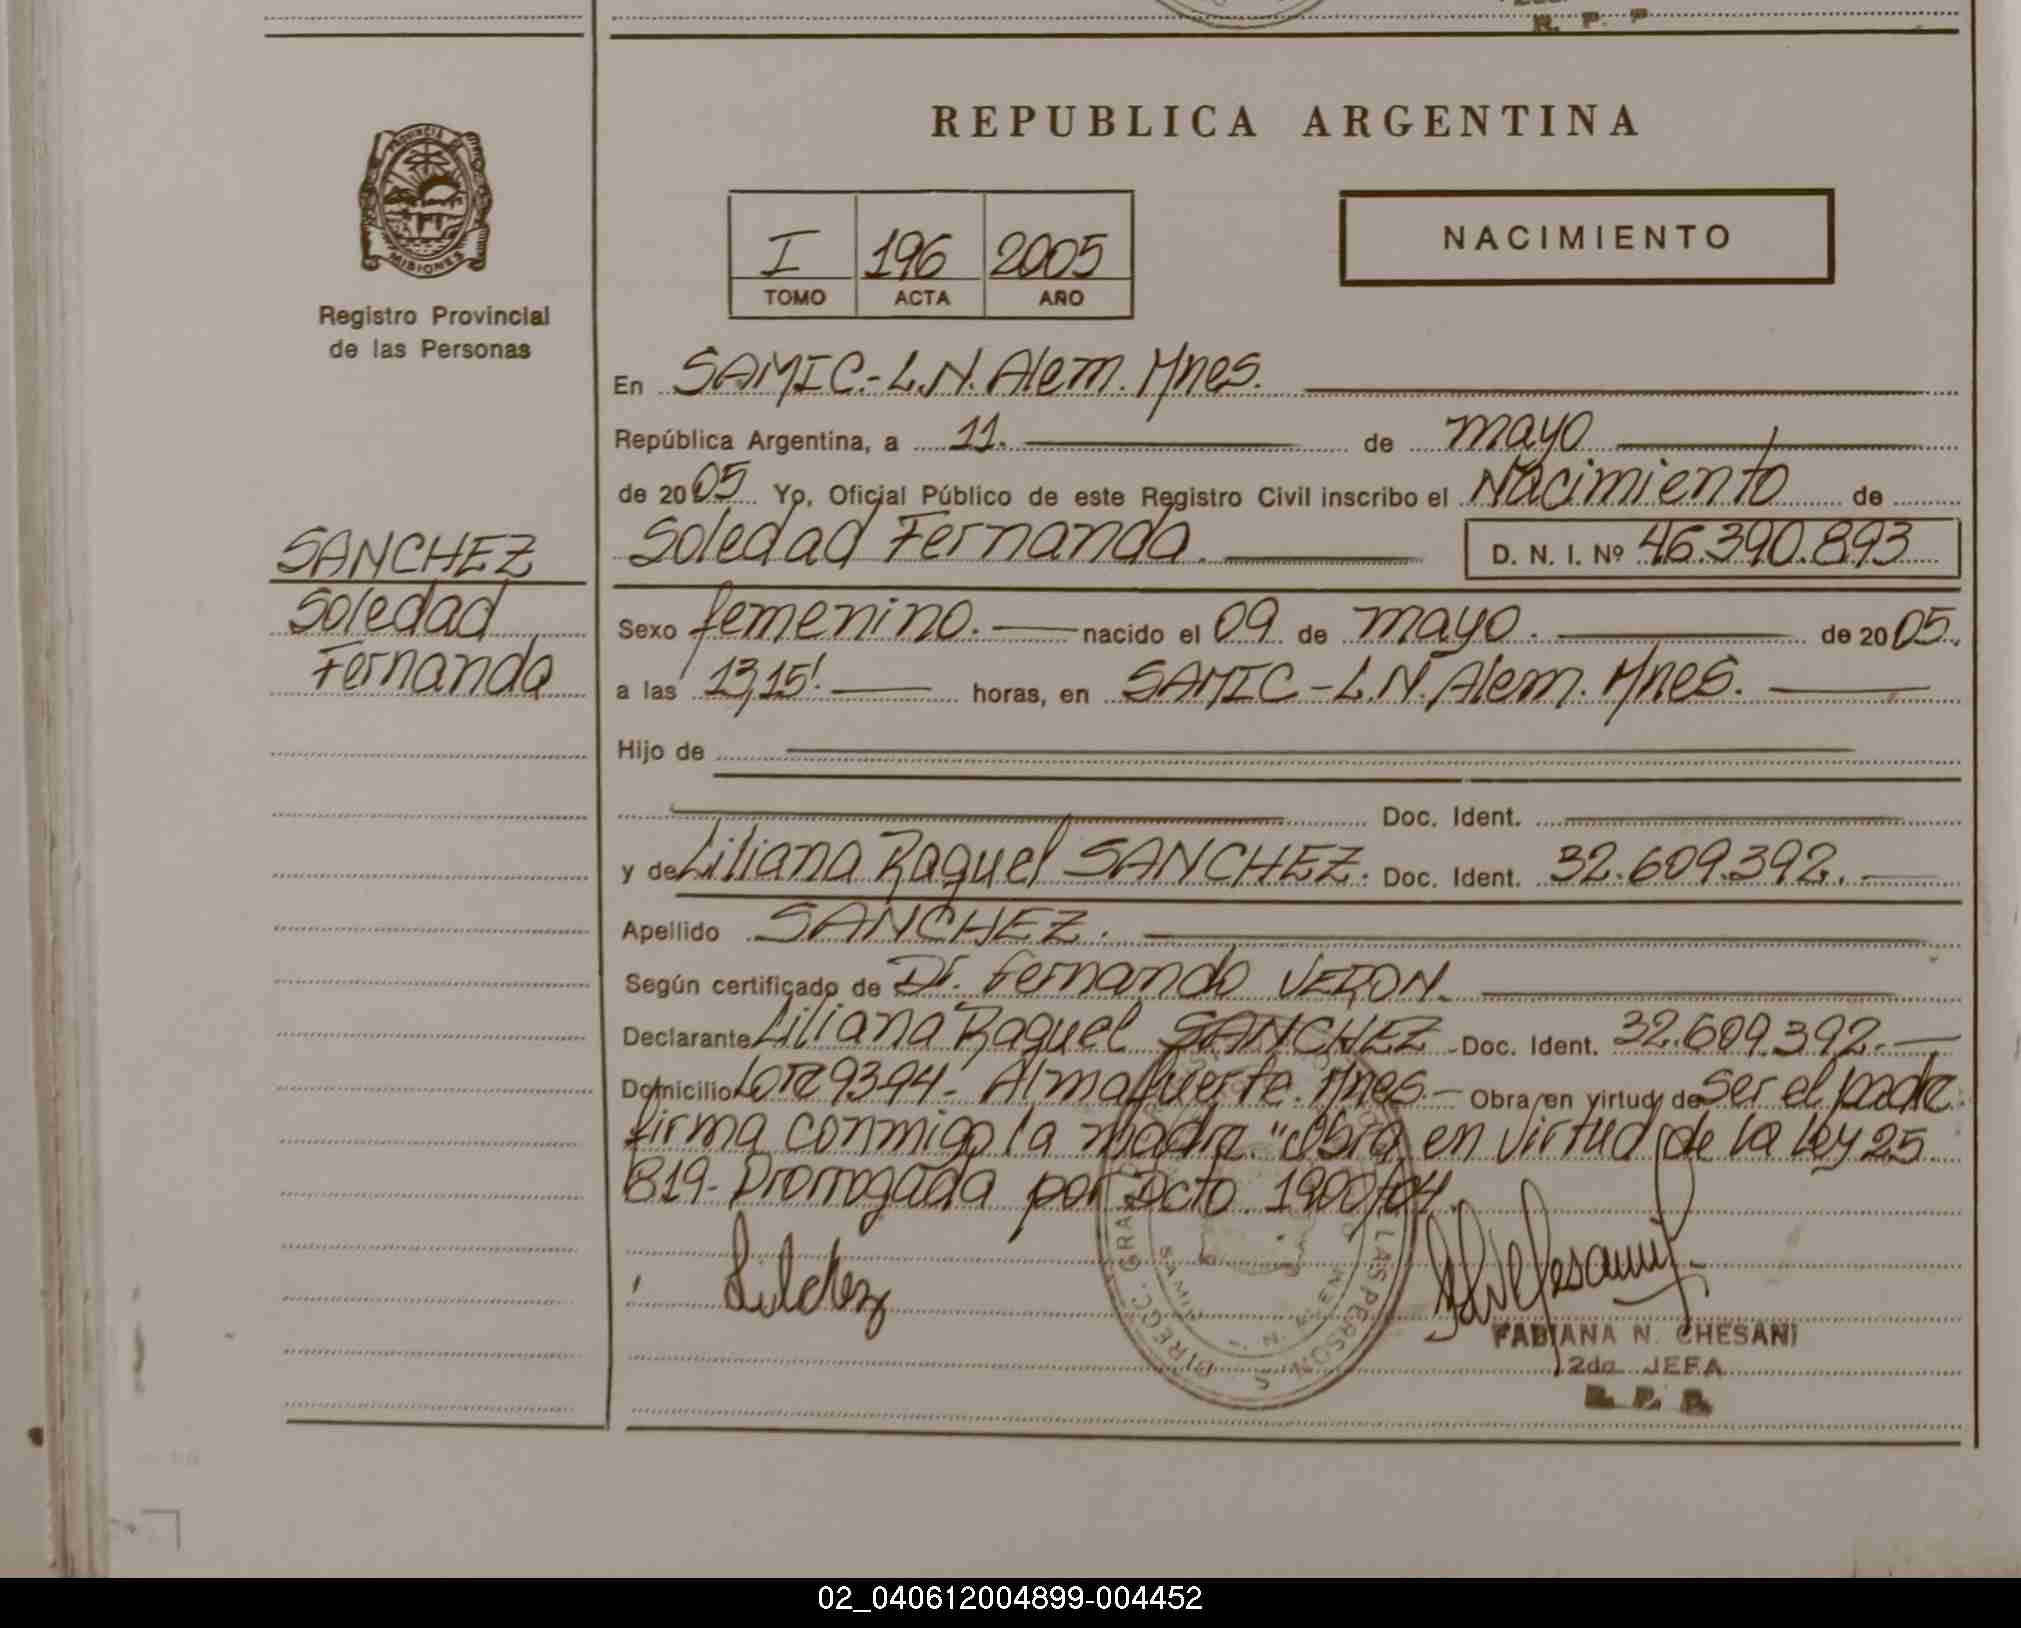 R. P. P
REPUBLICA ARGENTINA
PROVINCIA DE
MISIONES
Registro Provincial
de las Personas
I 196 2005
TOMO ACTA AÑO
NACIMIENTO
En SAMIC.-L.N. Alem. Mnes.
República Argentina, a 11. de mayo
de 2005 Yo, Oficial Público de este Registro Civil inscribo el Nacimiento de
Soledad Fernanda. D. N. I. Nº 46.390.893
SANCHEZ
Soledad
Fernanda
Sexo femenino. nacido el 09 de mayo. de 2005.
a las 13,15'. horas, en SAMIC-L.N. Alem. Mnes.
Hijo de
Doc. Ident.
y de Liliana Raquel SANCHEZ. Doc. Ident. 32.609.392.
Apellido SANCHEZ.
Según certificado de Dr. Fernando VERON.
Declarante Liliana Raquel SANCHEZ Doc. Ident. 32.609.392.
Domicilio Lote 9394- Almafuerte. Mnes.- Obra en virtud de ser el padre
firma conmigo la madre. "Obra en virtud de la Ley 25
819- Prorrogada por Dcto. 1900/04.
FABIANA N. CHESANI
2da JEFA
R. P. P.
02_040612004899-004452